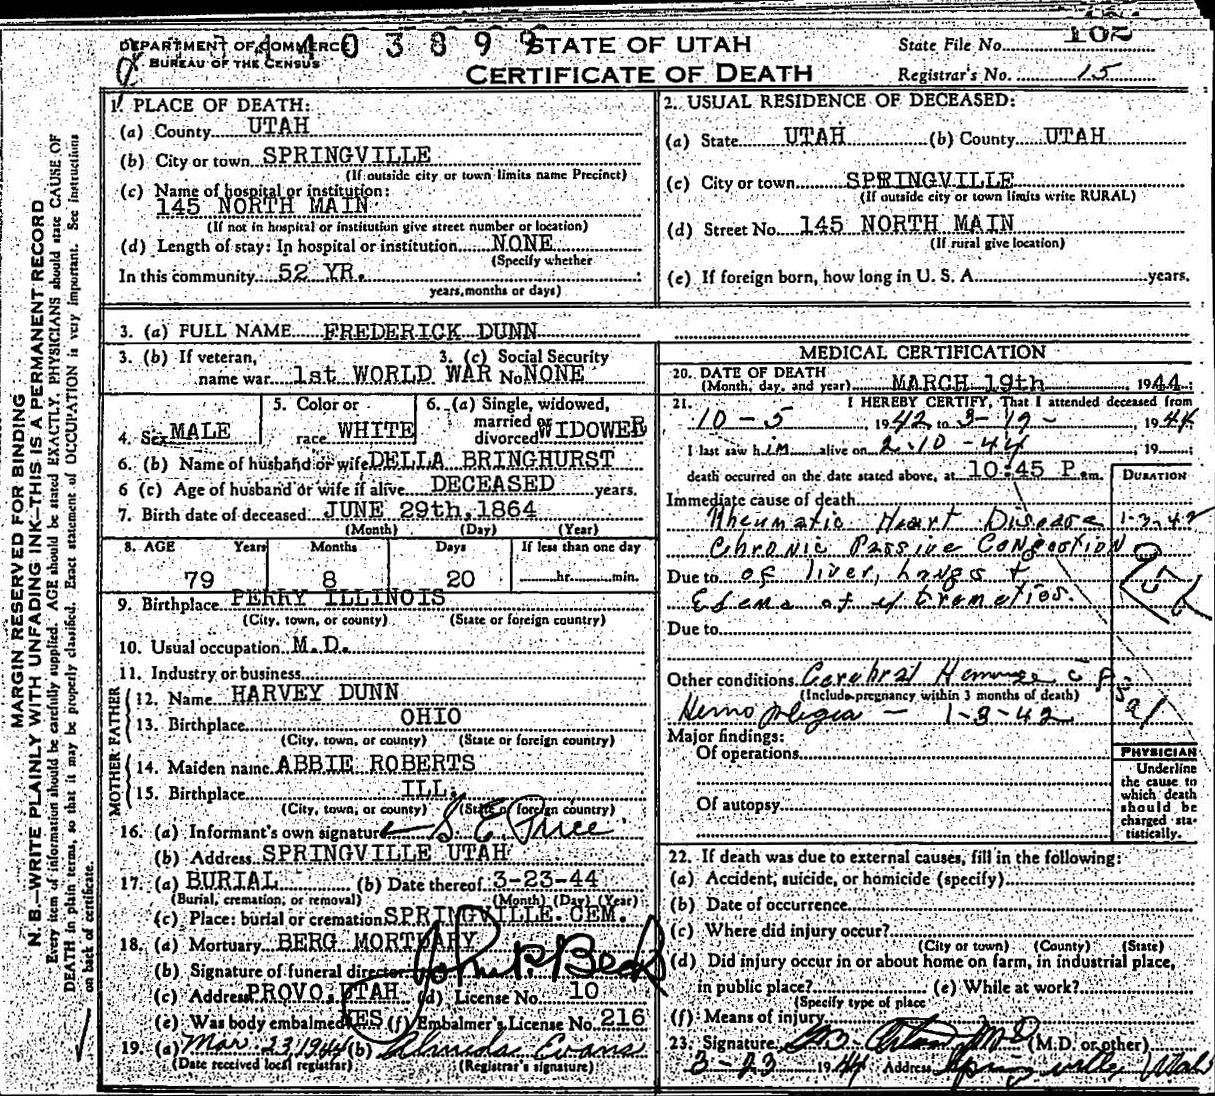 DEPARTMENT OF COMMERCE
BUREAU OF THE CENSUS
4403899
STATE OF UTAH
CERTIFICATE OF DEATH
State File No. 162
Registrar's No. 15
MARGIN RESERVED FOR BINDING
N. B.—WRITE PLAINLY WITH UNFADING INK—THIS IS A PERMANENT RECORD
Every item of information should be carefully supplied. AGE should be stated EXACTLY. PHYSICIANS should state CAUSE OF
DEATH in plain terms, so that it may be properly classified. Exact statement of OCCUPATION is very important. See instructions
on back of certificate.
1. PLACE OF DEATH:
(a) County UTAH
(b) City or town SPRINGVILLE
(If outside city or town limits name Precinct)
(c) Name of hospital or institution:
145 NORTH MAIN
(If not in hospital or institution give street number or location)
(d) Length of stay: In hospital or institution NONE
(Specify whether
In this community 52 YR.
years, months or days)
2. USUAL RESIDENCE OF DECEASED:
(a) State UTAH (b) County UTAH
(c) City or town SPRINGVILLE
(If outside city or town limits write RURAL)
(d) Street No. 145 NORTH MAIN
(If rural give location)
(e) If foreign born, how long in U. S. A. years.
3. (a) FULL NAME FREDERICK DUNN
3. (b) If veteran, name war 1st WORLD WAR
3. (c) Social Security No. NONE
4. Sex MALE
5. Color or race WHITE
6. (a) Single, widowed, married or divorced WIDOWER
6. (b) Name of husband or wife DELLA BRINGHURST
6 (c) Age of husband or wife if alive DECEASED years.
7. Birth date of deceased JUNE 29th, 1864
(Month) (Day) (Year)
8. AGE Years Months Days If less than one day
79 8 20 hr. min.
9. Birthplace PERRY ILLINOIS
(City, town, or county) (State or foreign country)
10. Usual occupation M.D.
11. Industry or business
FATHER
12. Name HARVEY DUNN
13. Birthplace OHIO
(City, town, or county) (State or foreign country)
MOTHER
14. Maiden name ABBIE ROBERTS
15. Birthplace ILL.
(City, town, or county) (State or foreign country)
16. (a) Informant's own signature S. E. Price
(b) Address SPRINGVILLE UTAH
17. (a) BURIAL (b) Date thereof 3-23-44
(Burial, cremation, or removal) (Month) (Day) (Year)
(c) Place: burial or cremation SPRINGVILLE CEM.
18. (a) Mortuary BERG MORTUARY
(b) Signature of funeral director
(c) Address PROVO, UTAH (d) License No. 10
(e) Was body embalmed YES (f) Embalmer's License No. 216
19. (a) Mar. 23, 1944 (b) Almeda Evans
(Date received local registrar) (Registrar's signature)
MEDICAL CERTIFICATION
20. DATE OF DEATH
(Month, day, and year) MARCH 19th 1944
21. I HEREBY CERTIFY, That I attended deceased from
10-5 1942 to 3-19- 1944
I last saw him alive on 2-10-44 19
death occurred on the date stated above, at 10:45 P.m.
DURATION
Immediate cause of death
Rheumatic Heart Disease 1-3-42
Chronic Passive Congestion
Due to of liver, Lungs +
Edema of extremeties.
Due to
Other conditions Cerebral
(Include pregnancy within 3 months of death)
Hemoplegia — 1-3-42
Major findings:
Of operations
Of autopsy
PHYSICIAN
Underline
the cause to
which death
should be
charged sta-
tistically.
22. If death was due to external causes, fill in the following:
(a) Accident, suicide, or homicide (specify)
(b) Date of occurrence
(c) Where did injury occur?
(City or town) (County) (State)
(d) Did injury occur in or about home on farm, in industrial place,
in public place? (e) While at work?
(Specify type of place
(f) Means of injury
23. Signature M.D. (M.D. or other)
3-23 1944 Address Springville, Utah